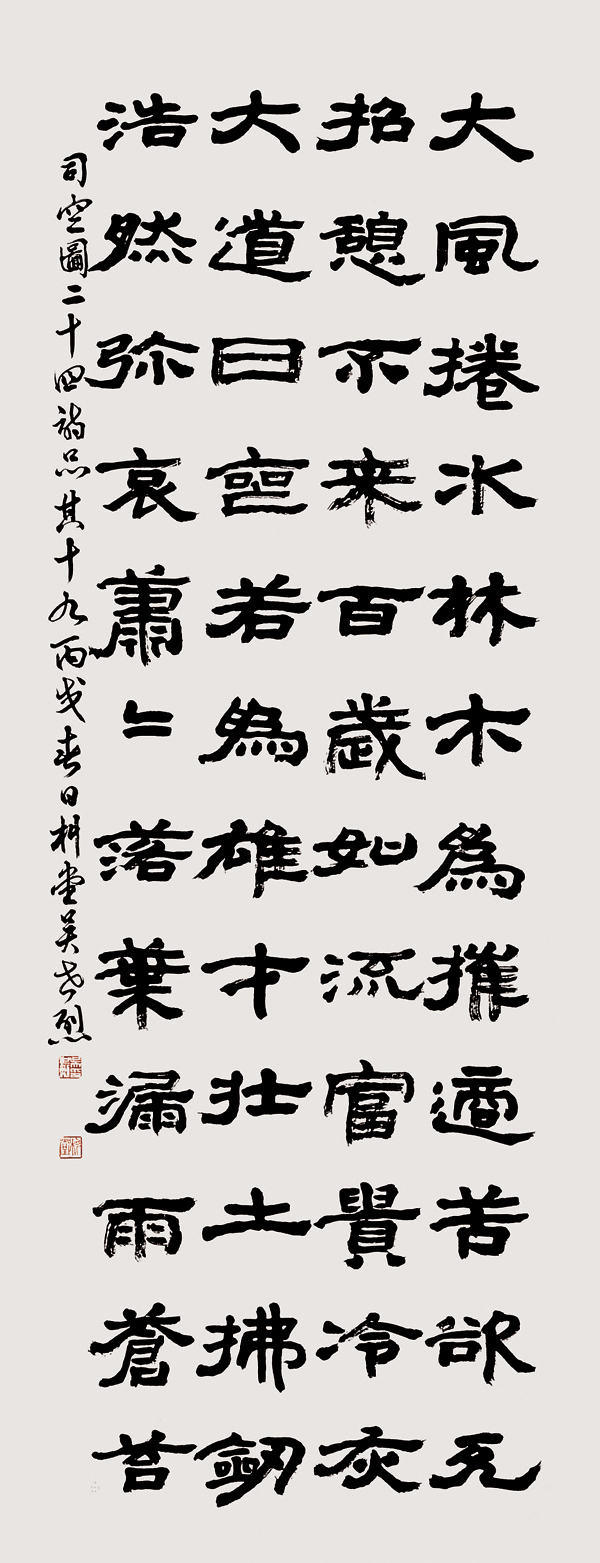 大風捲水林木為摧適苦欲死
招憩不来百歲如流富貴冷灰
大道日喪若為雄才壯士拂劒
浩然弥哀蕭〻落葉漏雨蒼苔
司空圖二十四詩品其十九丙戌春日堂吴烈